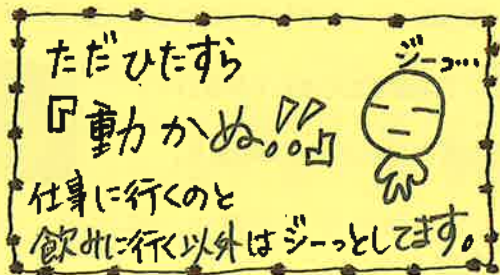 ただひたすら
『動かぬ!!』
ジーッ…
仕事に行くのと
飲みに行く以外はジーっとしてます。